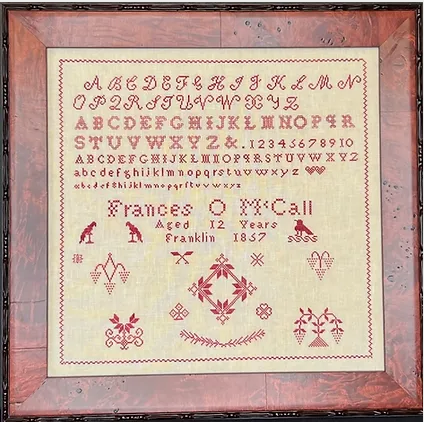 A B C D E F G H I J K L M N
O P Q R S T U V W X Y Z
A B C D E F G H I J K L M N O P Q R
S T U V W X Y Z & . 1 2 3 4 5 6 7 8 9 10
A B C D E F G H I J K L M N O P Q R S T U V W X Y Z
a b c d e f g h i j k l m n o p q r s t u v w x y z
a b c d e f g h i j k l m n o p q r s t u v w x y z
Frances O McCall
Aged 12 Years
Franklin 1857